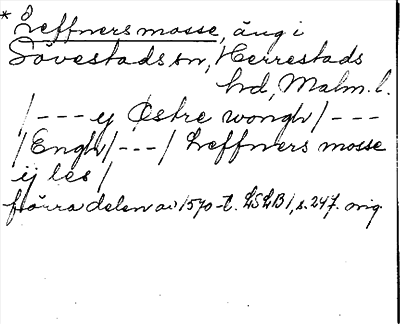 * Leffners mosse, äng i
Sövestads sn, Herrestads
hd, Malm. l.
/--- ey Østre wongh/---
/Engh/---/ Leffners mosse
ij les/
förra delen av 1570-t. LSLB 1, s. 247. orig